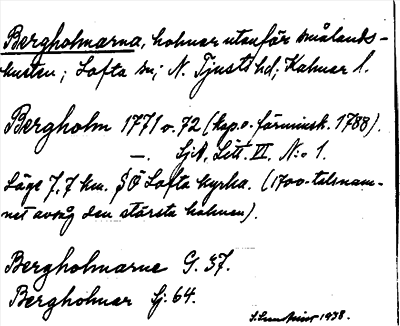 Bergholmarna, holmar utanför smålands-
kusten; Lofta sn; N. Tjusts hd; Kalmar l.
Bergholm 1771 o. 72 (kop. o. förminsk. 1788).
—. SjK, Litt. VI, N:o 1.
Läge 7,7 km. SÖ Lofta kyrka. (1700-talsnam-
net avsåg den största holmen).
Bergholmarne G. 37.
Bergholmar Sj. 64.
1938.